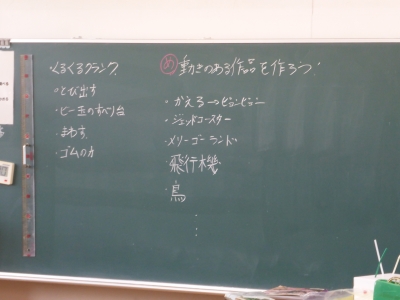 ・くるくるクランク
・とび出す
・ビー玉のすべり台
・まわす
・ゴムの力
め 動きのある作品を作ろう!
・かえる→ピョンピョン
・ジェットコースター
・メリーゴーランド
・飛行機
・鳥